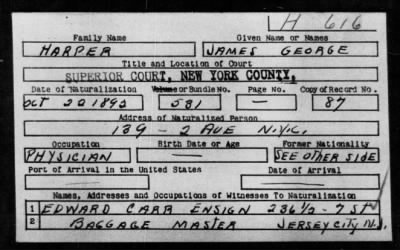 H 616
Family Name Given Name or Names
HARPER JAMES GEORGE
Title and Location of Court
SUPERIOR COURT, NEW YORK COUNTY.
Date of Naturalization Volume or Bundle No. Page No. Copy of Record No.
OCT 20 1892 531 — 87
Address of Naturalized Person
139 - 2 AVE N.Y.C.
Occupation Birth Date or Age Former Nationality
PHYSICIAN — SEE OTHER SIDE
Port of Arrival in the United States Date of Arrival
— —
Names, Addresses and Occupations of Witnesses To Naturalization
1 EDWARD CARR ENSIGN 236 1/2 - 7 ST
2 BAGGAGE MASTER JERSEY CITY N.J.